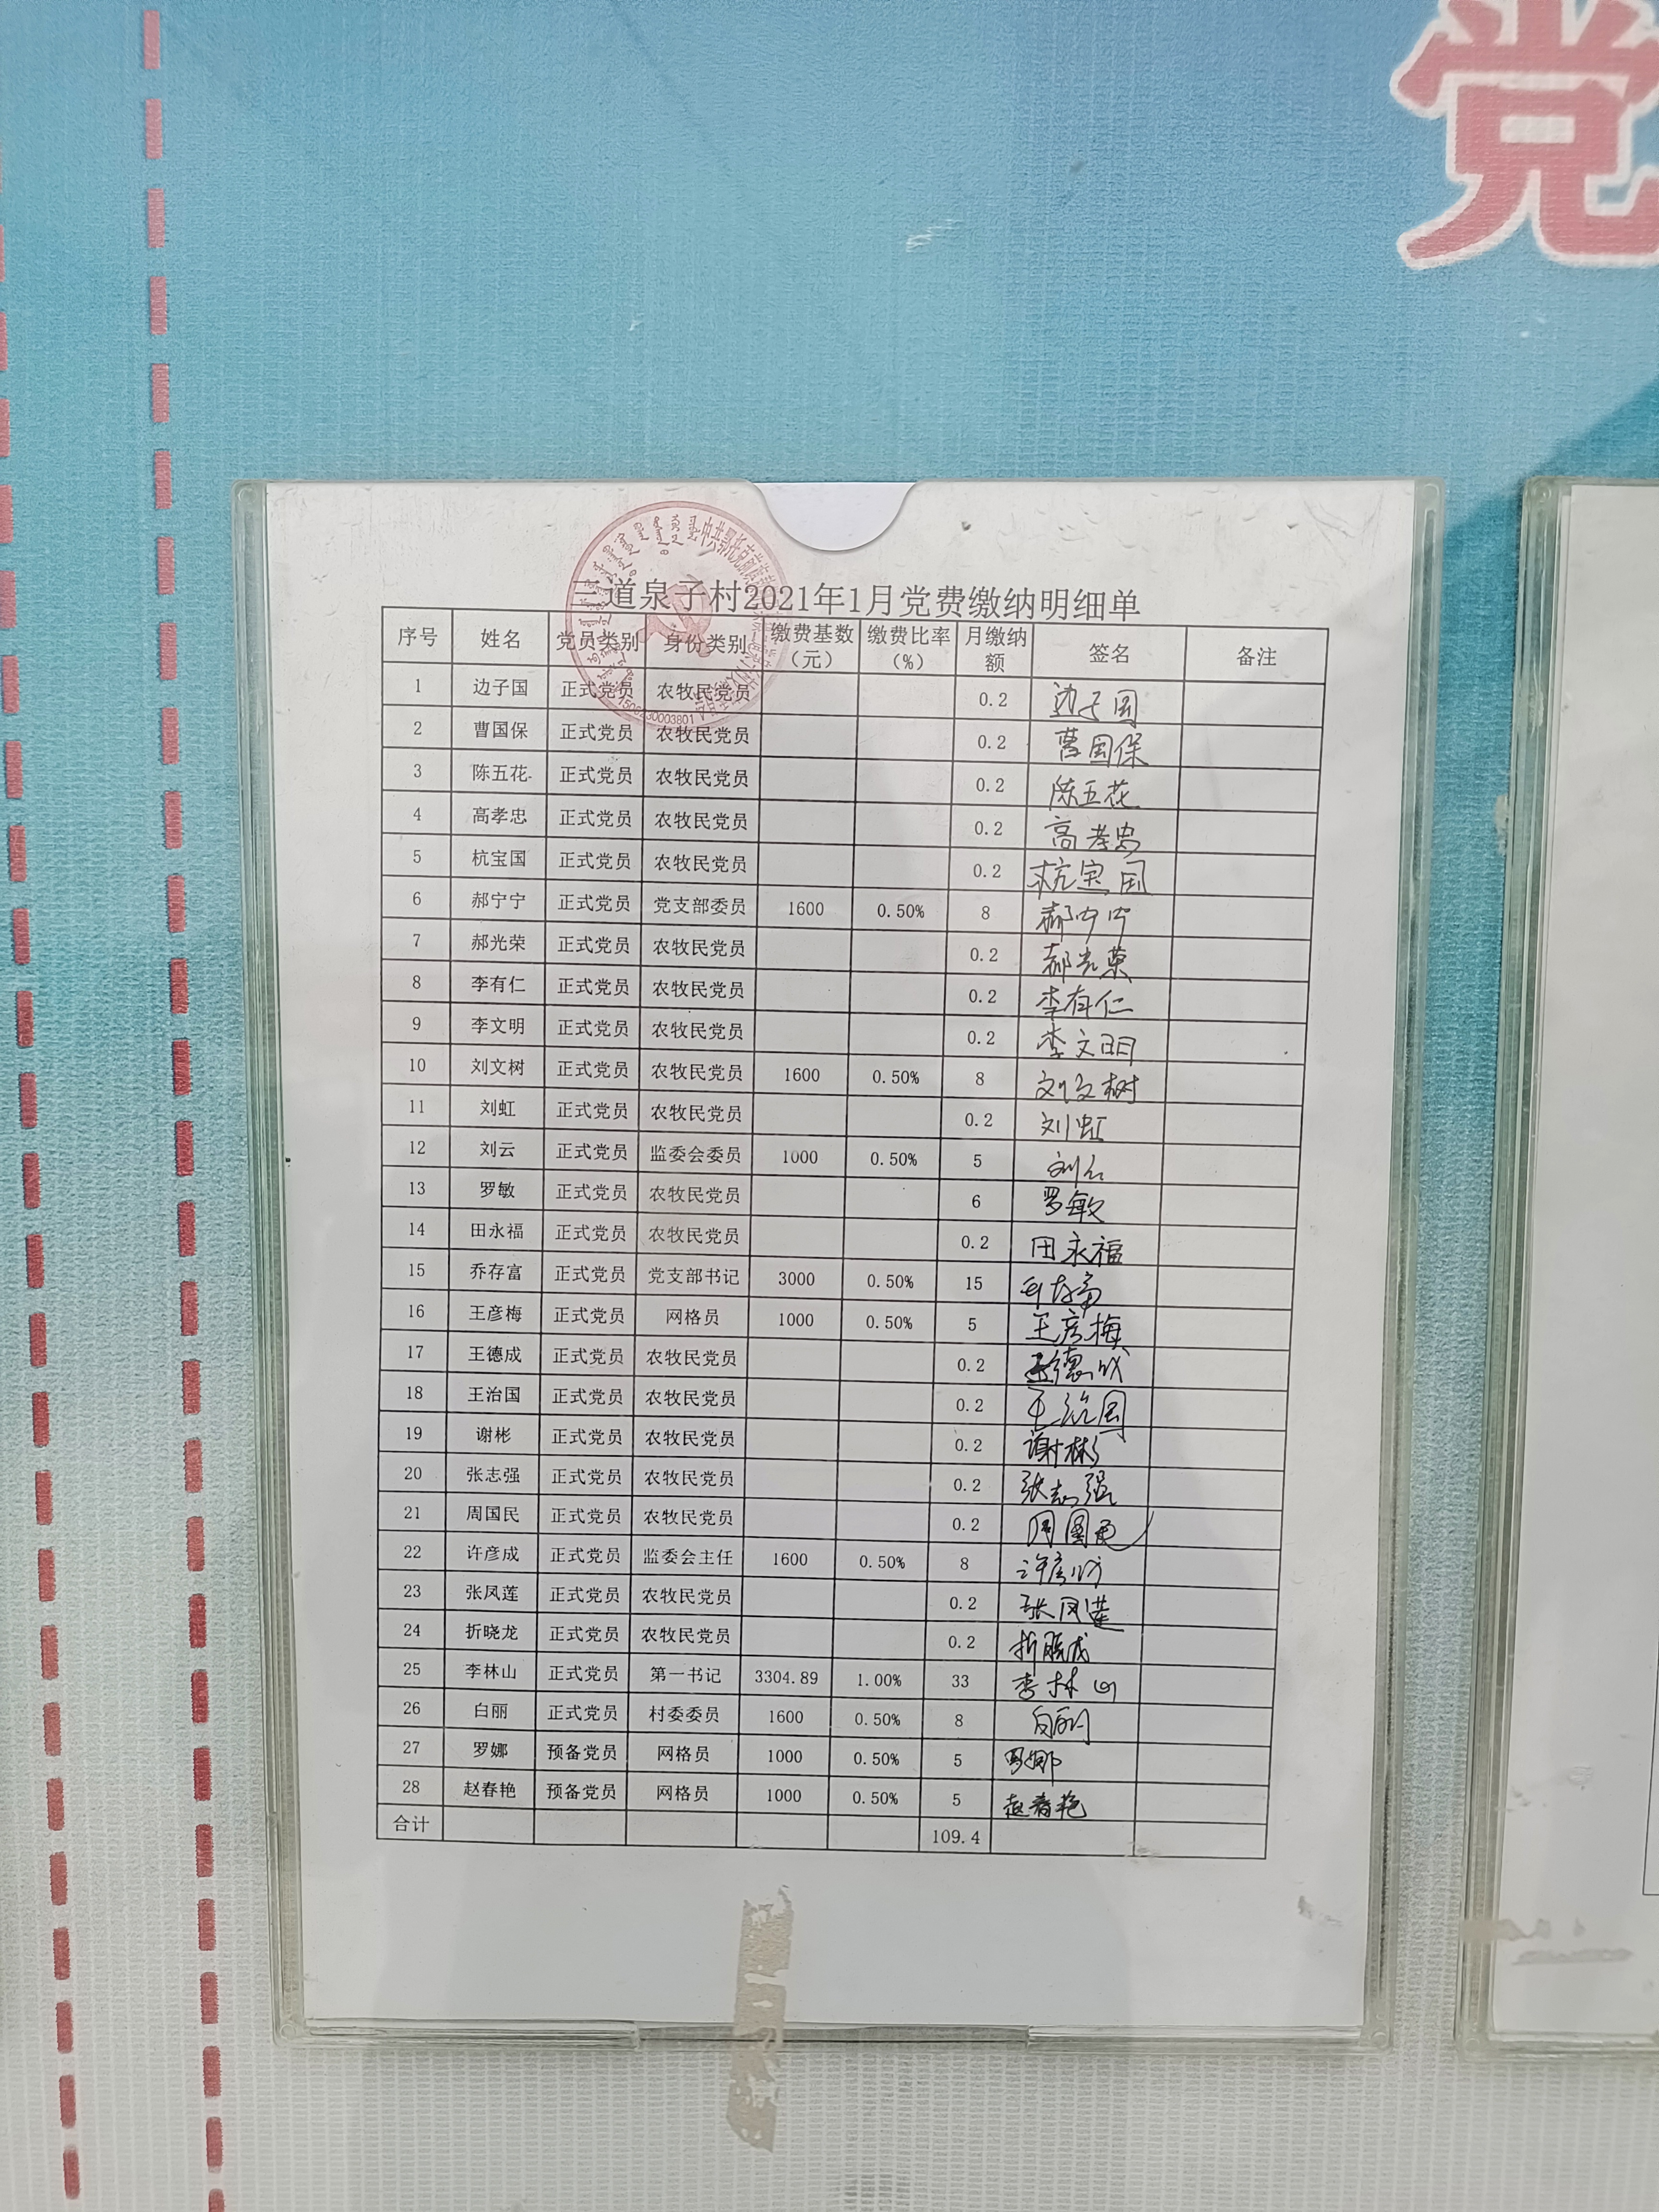 党
三道泉子村2021年1月党费缴纳明细单
序号 姓名 党员类别 身份类别 缴费基数（元） 缴费比率（%） 月缴纳额 签名 备注
1 边子国 正式党员 农牧民党员 0.2 边子国
2 曹国保 正式党员 农牧民党员 0.2 曹国保
3 陈五花 正式党员 农牧民党员 0.2 陈五花
4 高孝忠 正式党员 农牧民党员 0.2 高孝忠
5 杭宝国 正式党员 农牧民党员 0.2 杭宝国
6 郝宁宁 正式党员 党支部委员 1600 0.50% 8 郝宁宁
7 郝光荣 正式党员 农牧民党员 0.2 郝光荣
8 李有仁 正式党员 农牧民党员 0.2 李有仁
9 李文明 正式党员 农牧民党员 0.2 李文明
10 刘文树 正式党员 农牧民党员 1600 0.50% 8 刘文树
11 刘虹 正式党员 农牧民党员 0.2 刘虹
12 刘云 正式党员 监委会委员 1000 0.50% 5 刘云
13 罗敏 正式党员 农牧民党员 6 罗敏
14 田永福 正式党员 农牧民党员 0.2 田永福
15 乔存富 正式党员 党支部书记 3000 0.50% 15 乔存富
16 王彦梅 正式党员 网格员 1000 0.50% 5 王彦梅
17 王德成 正式党员 农牧民党员 0.2 王德成
18 王治国 正式党员 农牧民党员 0.2 王治国
19 谢彬 正式党员 农牧民党员 0.2 谢彬
20 张志强 正式党员 农牧民党员 0.2 张志强
21 周国民 正式党员 农牧民党员 0.2 周国民
22 许彦成 正式党员 监委会主任 1600 0.50% 8 许彦成
23 张凤莲 正式党员 农牧民党员 0.2 张凤莲
24 折晓龙 正式党员 农牧民党员 0.2 折晓龙
25 李林山 正式党员 第一书记 3304.89 1.00% 33 李林山
26 白丽 正式党员 村委委员 1600 0.50% 8 白丽
27 罗娜 预备党员 网格员 1000 0.50% 5 罗娜
28 赵春艳 预备党员 网格员 1000 0.50% 5 赵春艳
合计 109.4